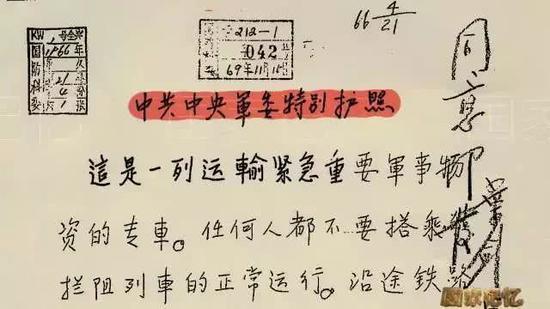 66 4/21
212-1
042
69年11月15
1966年
中共中央軍委特别护照
這是一列运輸紧急重要軍事物
资的专車。任何人都不要搭乘
拦阻列車的正常运行。沿途鉄路
同意印发
国家记忆